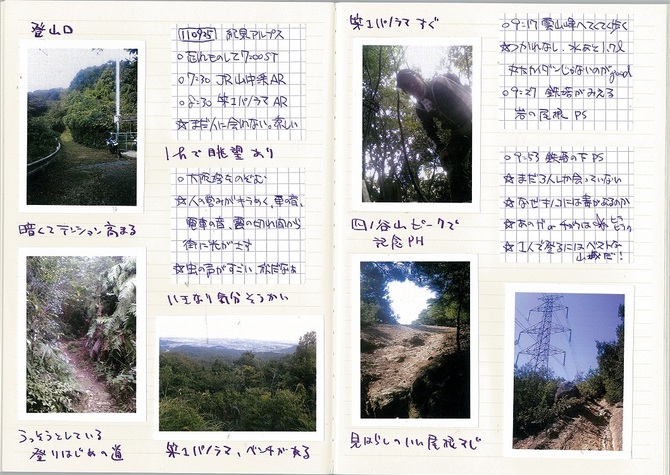 登山口
110925 紀泉アルプス
○7:30 JR山中渓AR
○8:30 第1パノラマAR
☆まだ人に会れない。涼しい
1九で眺望あり
○大阪湾をのぞむ
☆人の営みがキラめく、車の音、
電車の音、雲の切れ間から
街に光がさす
☆虫の声がすごい、
いきなり気分そうかい
暗くてテンション高まる
うっそうとしている
登りはじめの道
第1パノラマ、ベンチがある
第1パノラマすぐ
四ノ谷山ピークで
記念PH
見はらしのいい尾根すじ
○9:17 雲山峰へてくてく歩く
☆つかれなし、水あと1.7l
○9:27 鉄塔がみえる
岩の尾根 PS
○9:53 鉄塔の下 PS
☆まだ3人しか会っていない
☆なぜキノコには毒があるのか
☆1人で登るにはベストな
山域だ!